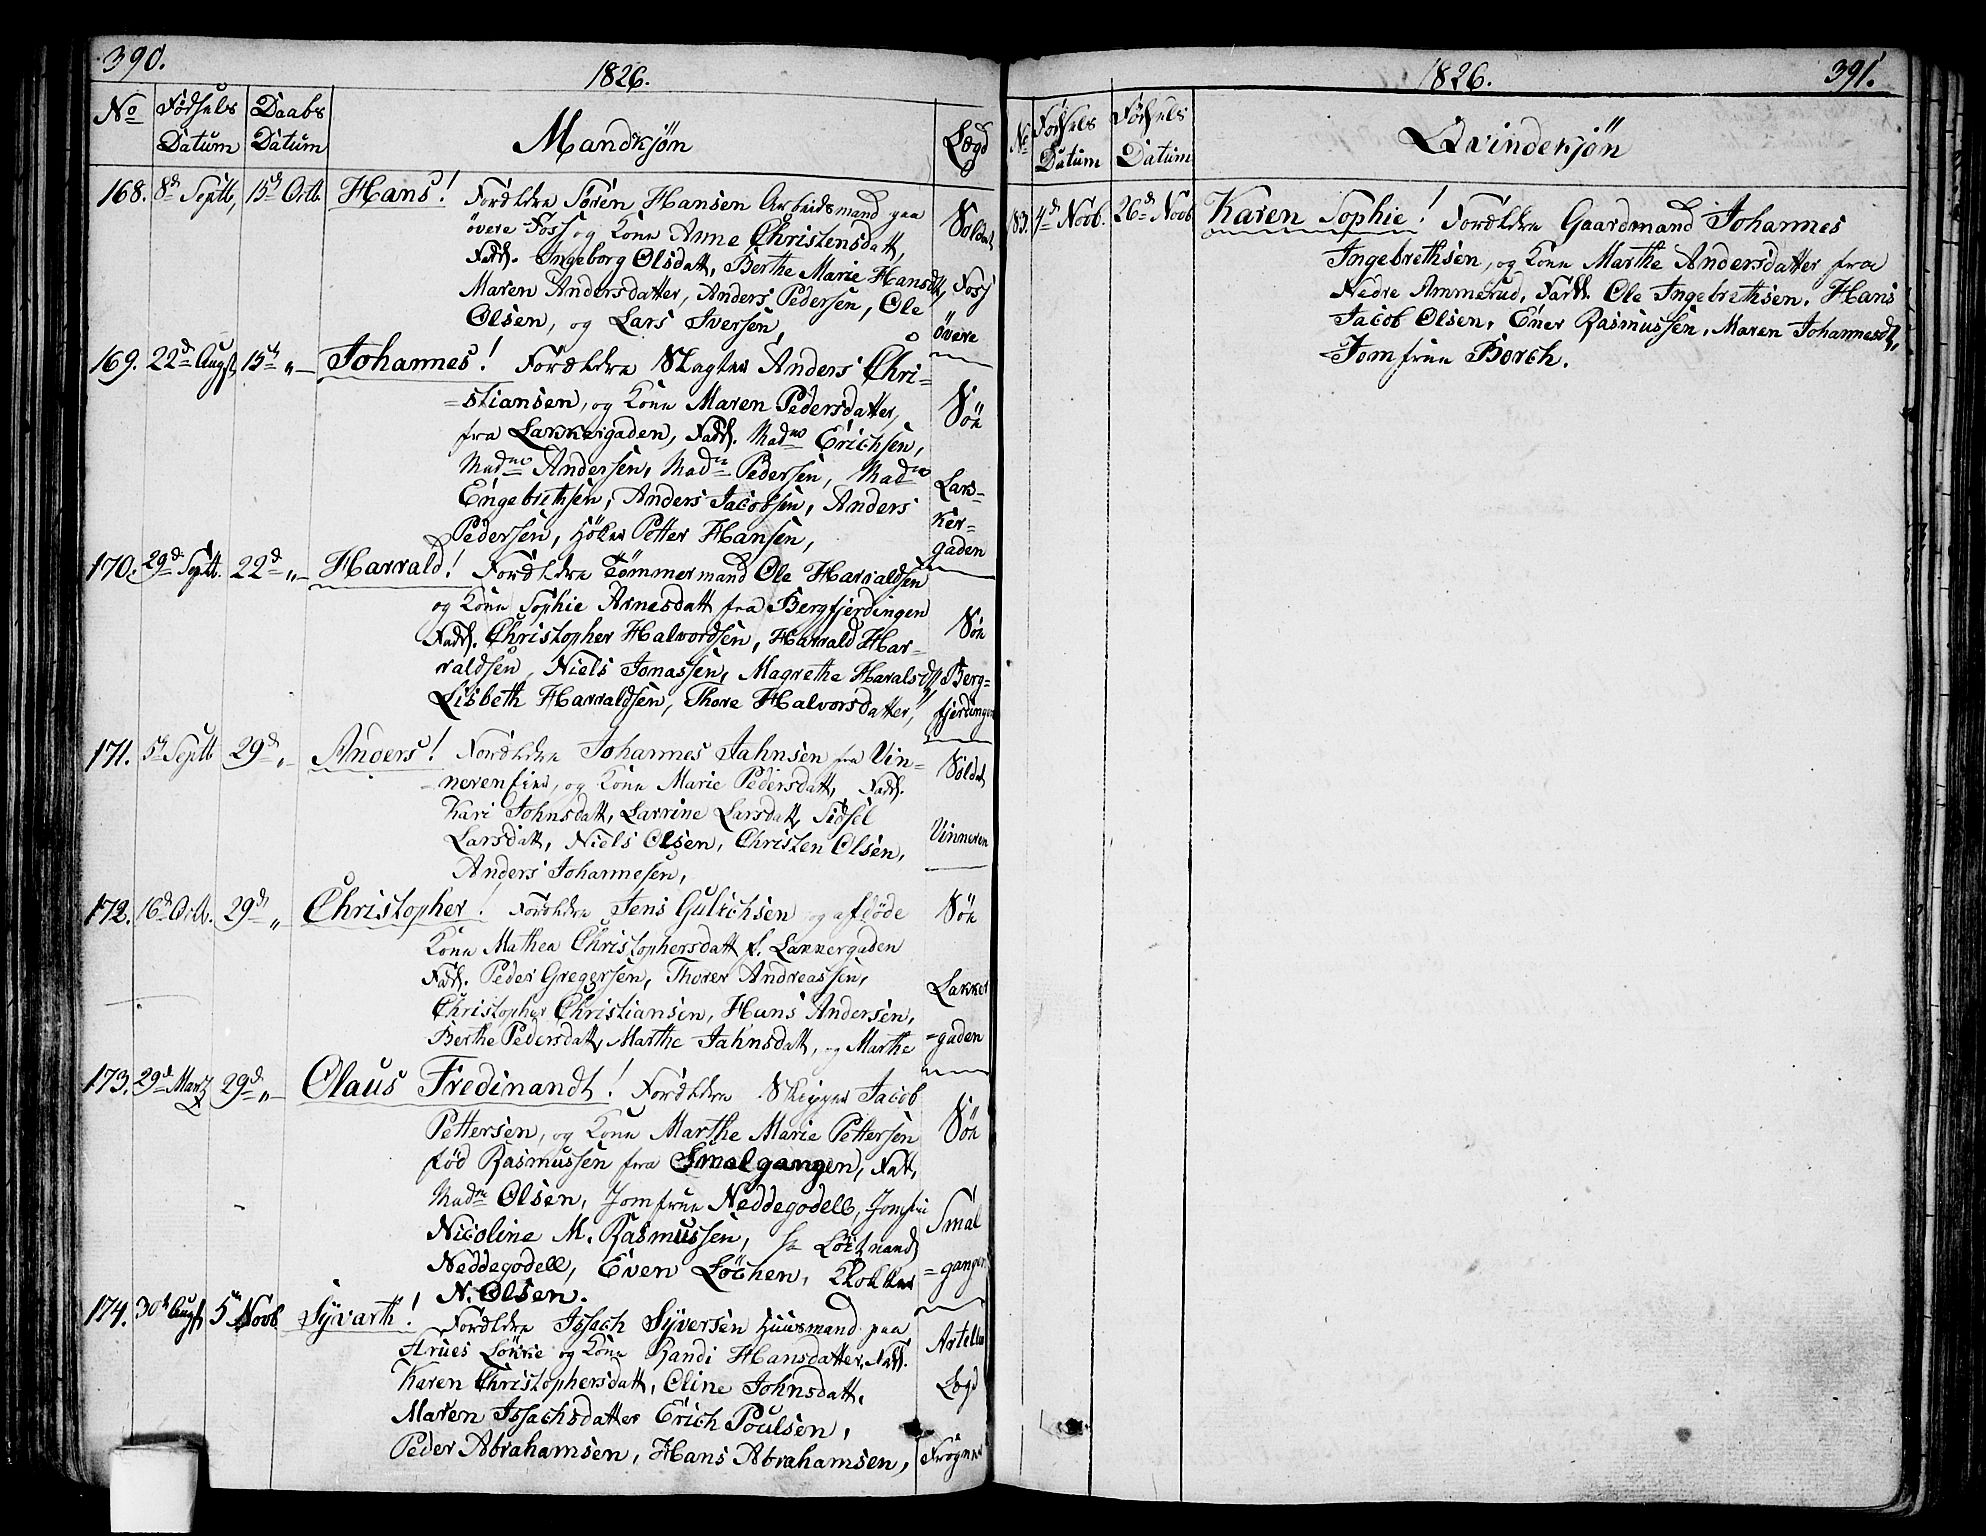 390.
1826.
No Fødsels Datum Daabs Datum Mandkjön Lægd
168. 8de Septb, 15de Octb. Hans! Forældre Søren Hansen Arbeidsmand paa Soldat
övere Foss og Kone Anne Christensdatt,
Fadd. Ingeborg Olsdatt, Berthe Marie Hansdtt, Foss
Maren Andersdatter, Anders Pedersen, Ole
Olsen, og Lars Iversen, övere
169. 22de Augst, 15de „ Johannes! Forældre Slagter Anders Chri=
=stiansen, og Kone Maren Pedersdatter, Söe
fra Lakkergaden, Fadd. Madme Erichsen,
Madme Andersen, Madme Pedersen, Madme Lak=
Engebrethsen, Anders Jacobsen, Anders ker=
Pedersen, Höker Petter Hansen, gaden
170. 29de Septb. 22de „ Harrald! Forældre Tömmermand Ole Harraldsen
og Kone Sophie Arnesdatt fra Bergfjerdingen
Fadd. Christopher Halvordsen, Harrald Har= Söe
raldsen, Niels Jonassen, Magrethe Haralsdtt, Berg=
Lisbeth Harraldsen, Thore Halvorsdatter, fjerdingen
171. 5te Septb 29de „ Anders! Forældre Johannes Jahnsen fra Vin= Soldat
neren eier, og Kone Marie Pedersdatt, Fadd.
Kari Johnsdatt, Larrine Larsdatt, Sidsel
Larsdatt, Niels Olsen, Christen Olsen, Vinneren
Anders Johannesen,
172. 16de Octb. 29de „ Christopher! Forældre Jens Gulichsen og afdøde Söe
Kone Mathea Christophersdatt f. Lakkergaden
Fadd. Peder Gregersen, Thorer Andreassen, Lakker
Christopher Christiansen, Hans Andersen,
Berthe Pedersdatt, Marthe Jahnsdatt, og Marthe =gaden
173. 29de Martz 29de „ Olaus Fredinandt! Forældre Skipper Jacob
Pettersen, og Kone Marthe Marie Pettersen Söe
fød Rasmussen fra Smalgangen, Fatt,
Madme Olsen, Jomfrue Neddegodell, Jomfru Smal
Nicoline M. Rasmussen, Hr Löitnand
Neddegodell, Even Löchen, Klokker =gangen
N. Olsen.
174. 30te Augst 5te Novb Syvarth! Forældre Issach Syversen Huusmand paa Artelle
Arues Løkke og Kone Randi Hansdatter, Fadd.
Karen Christophersdatt, Eline Johnsdatt, Legd
Maren Issachsdatter Erich Poulsen,
Peder Abrahamsen, Hans Abrahamsen, Frogner
1826.
391.
No Fødsels Datum Fødsels Datum Qvindekjön
83. 4de Novb. 26de Novb Karen Sophie! Forældre Gaardmand Johannes
Ingebrethsen, og Kone Marthe Andersdatter fra
Nedre Ammerud, Fadd. Ole Ingebrethsen, Hans
Jacob Olsen, Ener Rasmussen, Maren Johannesdt,
Jomfrue Borch.